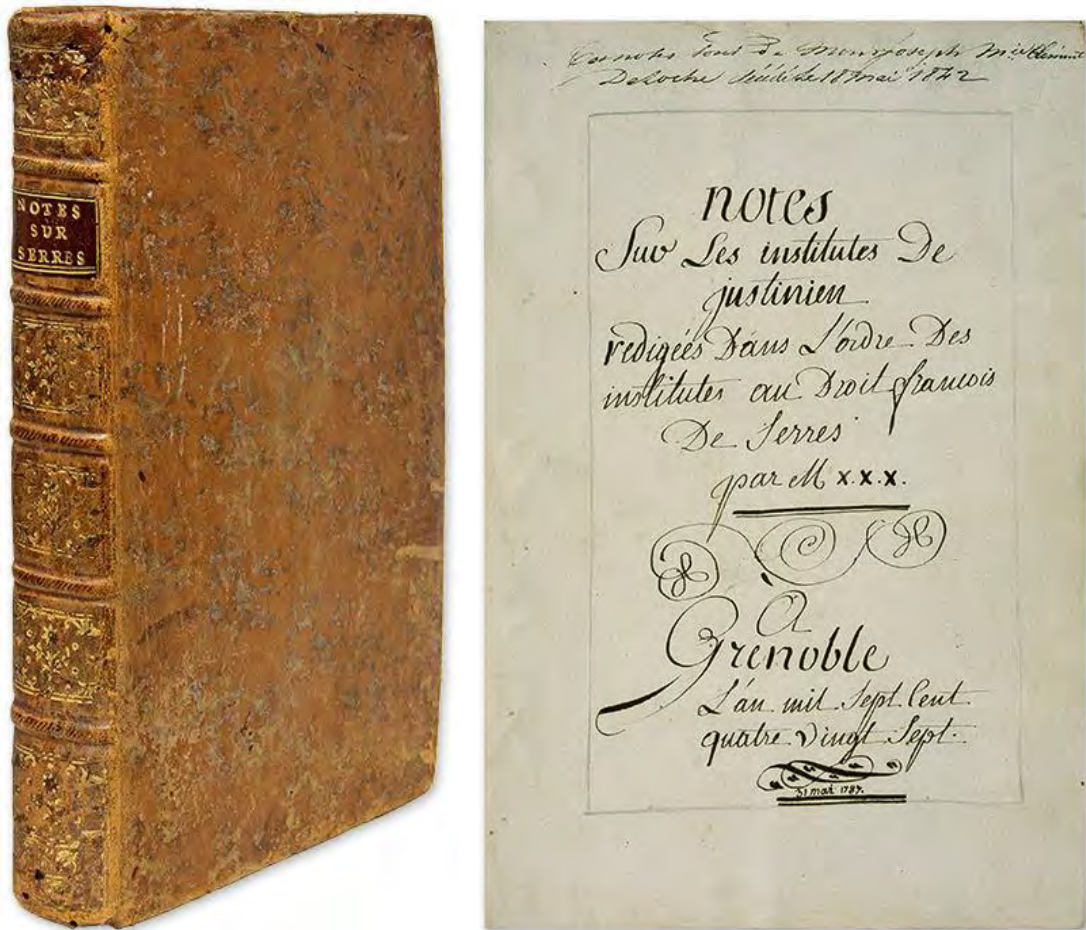 NOTES
SUR
SERRES
notes sont de Joseph
Deloche décédé le 18 mai 1842
notes
Sur Les institutes De
justinien
redigées Dans L'ordre Des
institutes au Droit francois
De Serres
par M x.x.x.
À
Grenoble
L'an mil Sept Cent
quatre Vingt Sept.
31 mai 1787.